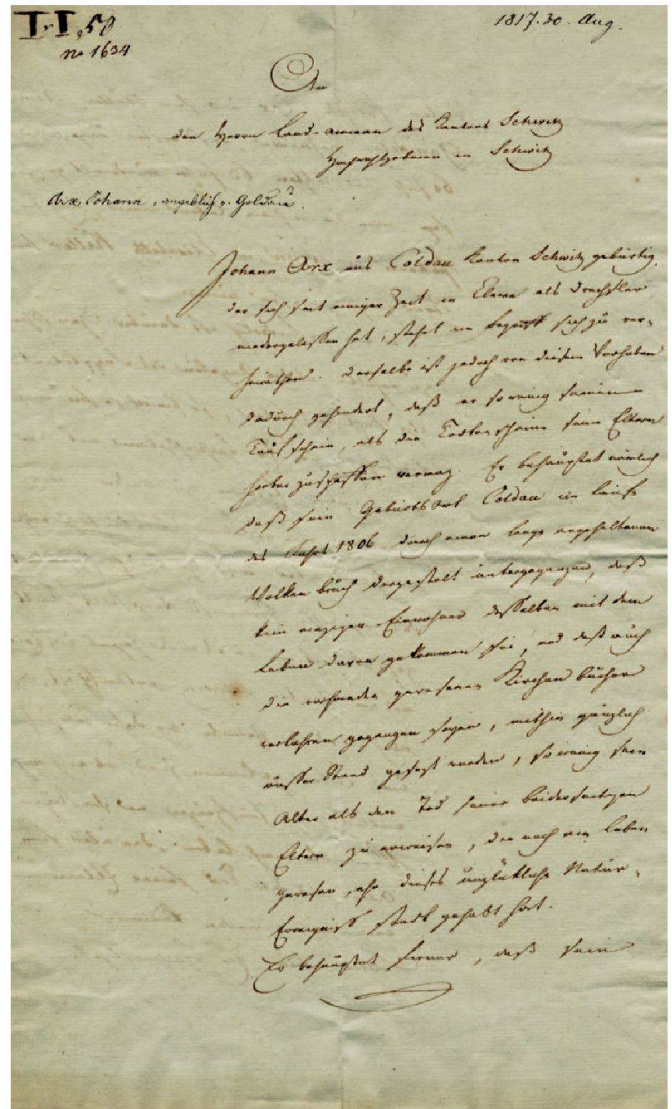 I.I,58
no 1634
1817.30. Aug.
An
den Herrn Land-amman des Kantons Schwitz
in Schwitz
Arx, Johann, angeblich v. Goldau.
Johann Arx aus Coldau Kanton Schwitz gebürtig,
der sich seit einiger Zeit in als Drechsler
niedergelassen hat, stehet im Begriff sich zu ver-
heirathen. Derselbe ist jedoch von diesem Vorhaben
dadurch gehindert, daß er so wenig seinen
Taufschein, als die Todtenscheine seiner Eltern
herbei zuschaffen vermag. Er behauptet nämlich
daß sein Geburtsort Coldau im Laufe
des Jahrs 1806 durch einen lange angehaltenen
Wolkenbruch dergestalt untergegangen, daß
kein einziger Einwohner desselben mit dem
Leben davon gekommen sei, und daß auch
die vorhanden gewesenen Kirchenbücher
verlohren gegangen seyen, mithin gänzlich
ausser Stand gesezt worden, so wenig sein
Alter als den Tod seiner beiderseitigen
Eltern zu erweisen, die noch am Leben
gewesen, ehe dieses unglükliche Natur-
Ereigniß statt gehabt hat.
Er behauptet ferner, daß sein